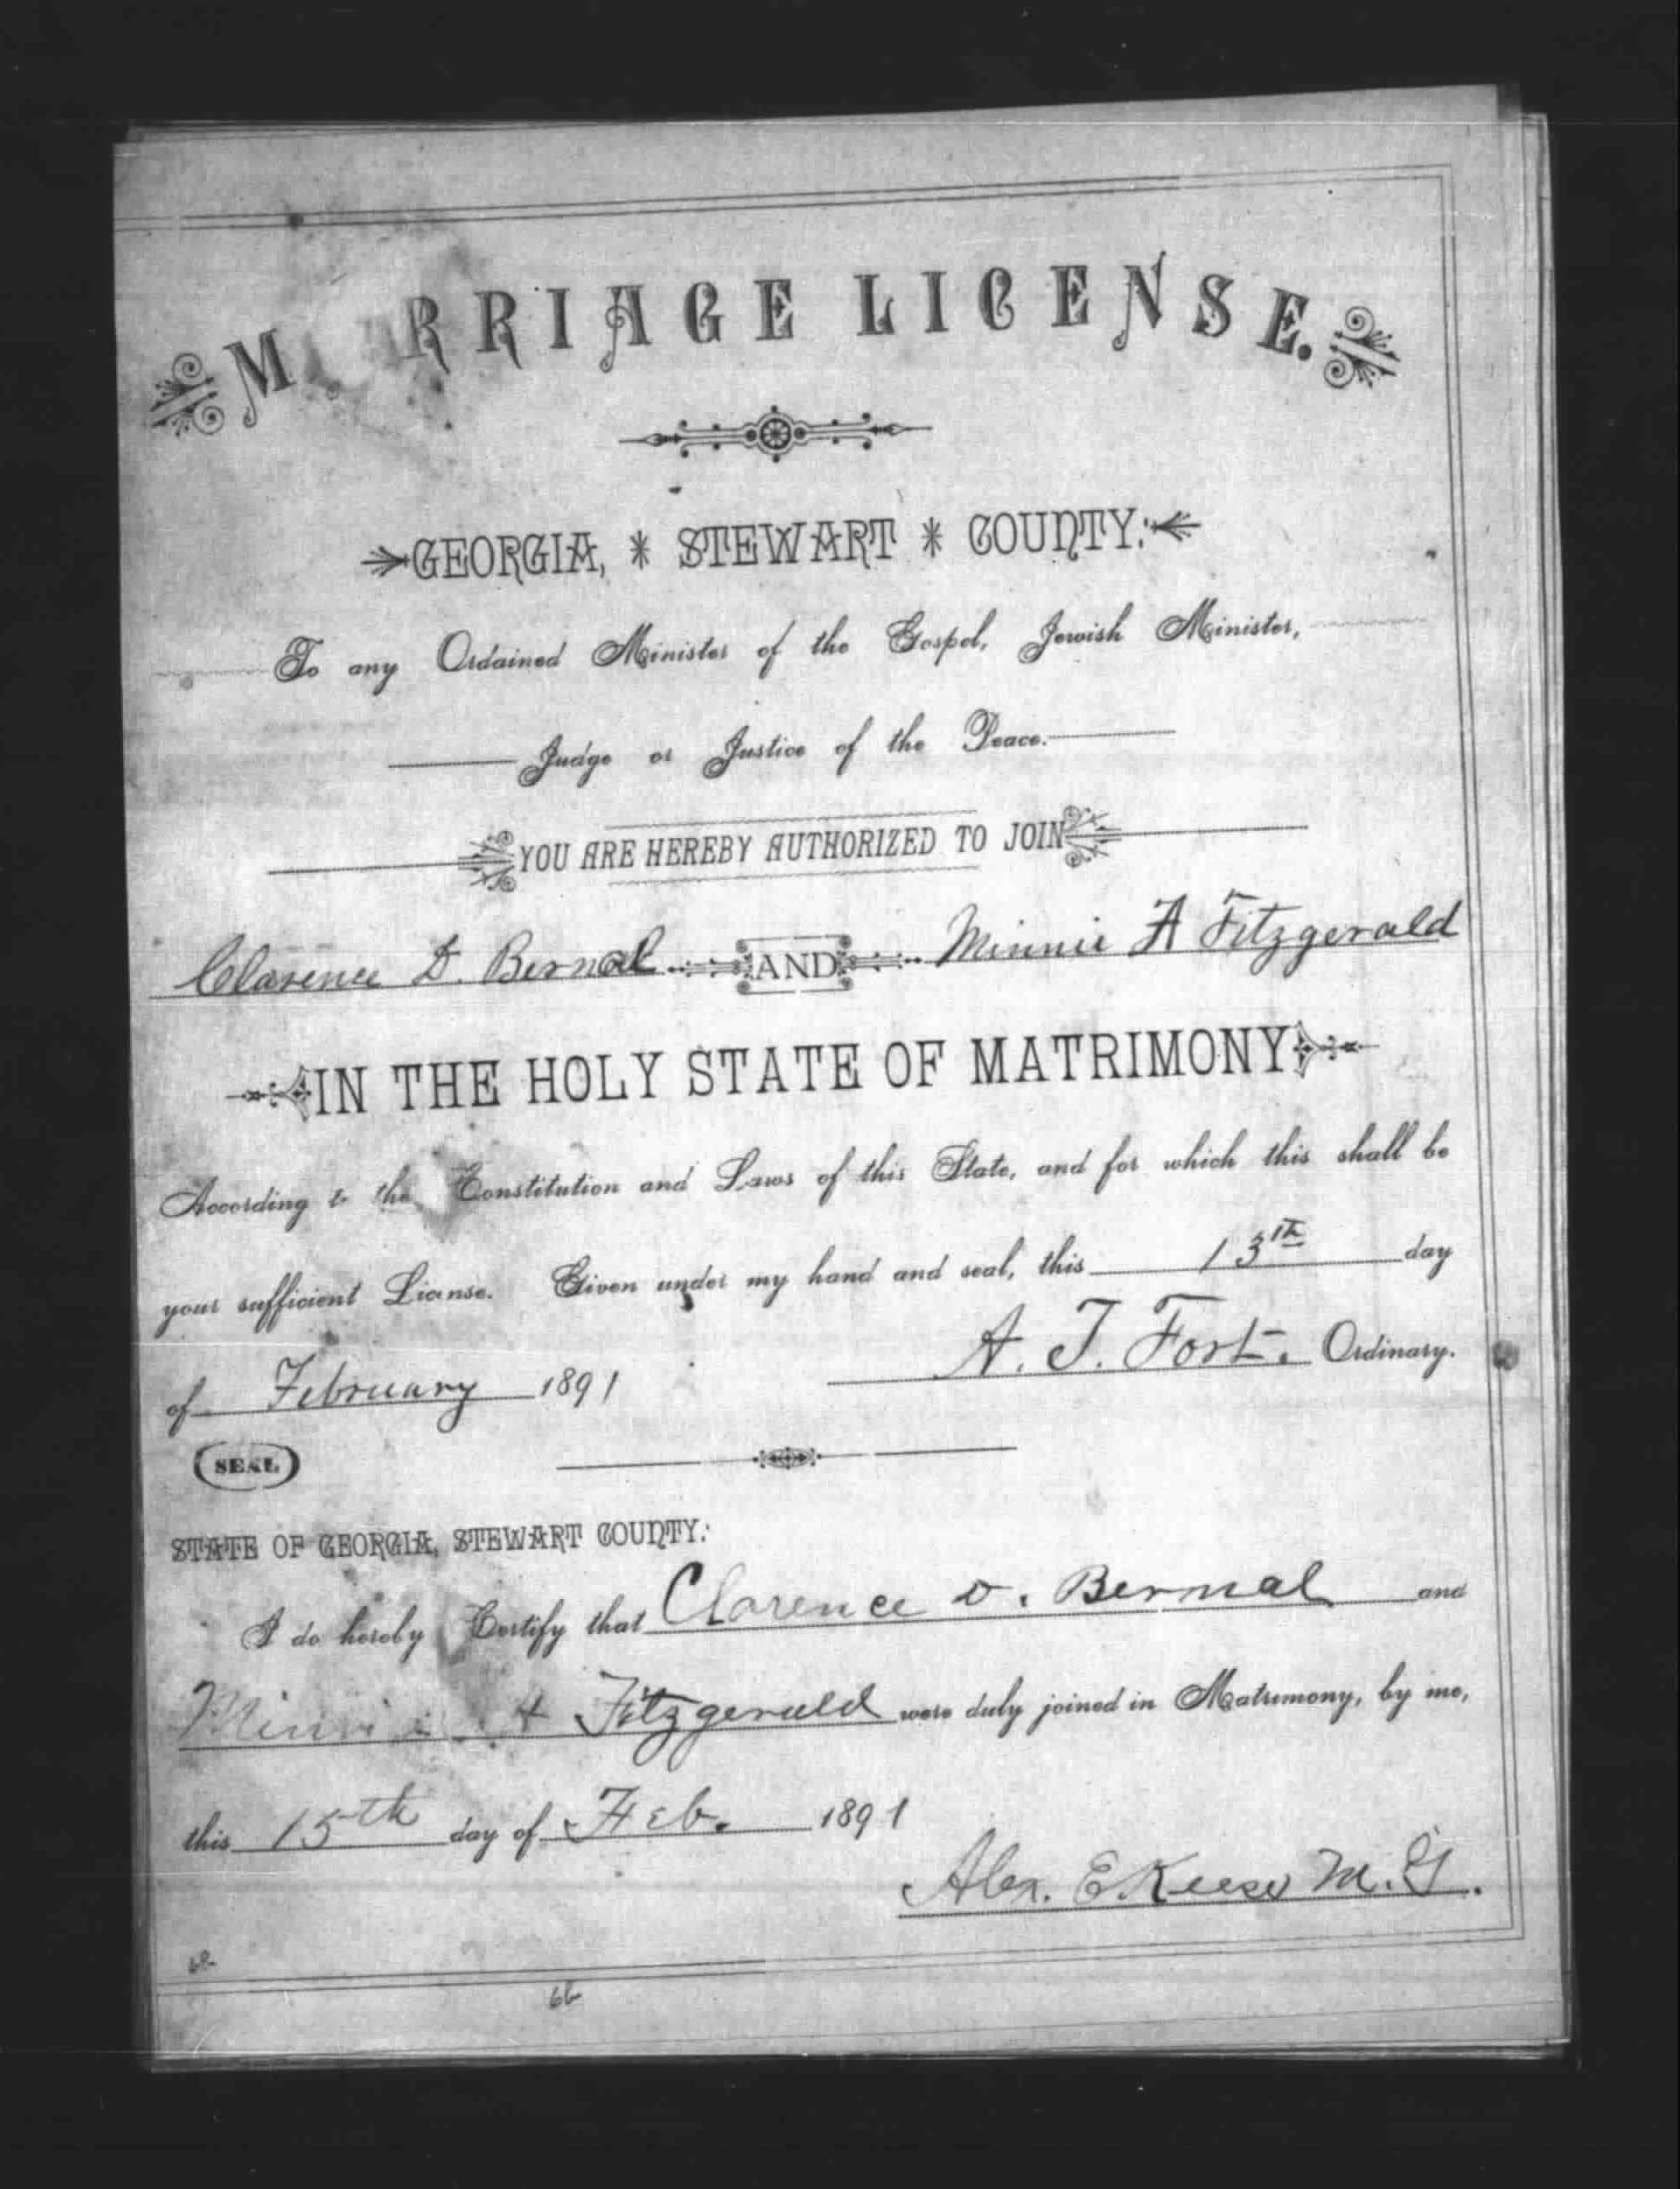 MARRIAGE LICENSE.
GEORGIA, * STEWART * COUNTY:
To any Ordained Minister of the Gospel, Jewish Minister,
Judge or Justice of the Peace.
YOU ARE HEREBY AUTHORIZED TO JOIN
Clarence D. Bernal AND Minnie A Fitzgerald
IN THE HOLY STATE OF MATRIMONY
According to the Constitution and Laws of this State, and for which this shall be
your sufficient License. Given under my hand and seal, this 13th day
of February 1891 A. T. Fort. Ordinary.
SEAL
STATE OF GEORGIA, STEWART COUNTY:
I do hereby Certify that Clarence D. Bernal and
Minnie A Fitzgerald were duly joined in Matrimony, by me,
this 15th day of Feb. 1891
Alex. E Keese M. G.